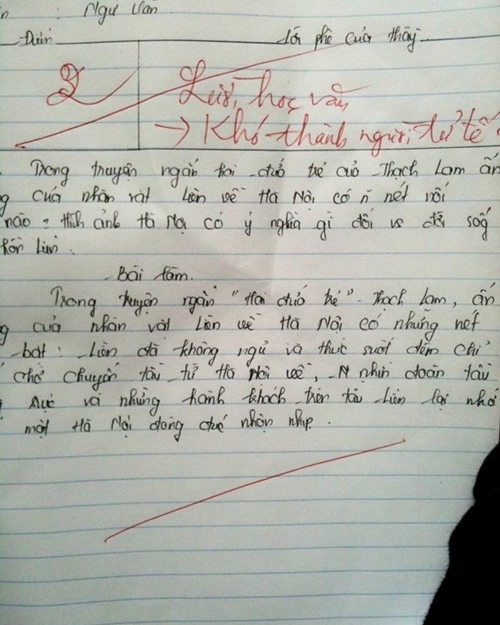 : Ngữ Văn
Điểm
Lời phê của thầy
2
Lười học văn
→ Khó thành người tử tế
Trong truyện ngắn hai đứa trẻ của Thạch Lam ấn
g của nhân vật Liên về Hà Nội có n nét nổi
nào. Hình ảnh Hà Nội có ý nghĩa gì đối vs đời sống
hồn Liên.
Bài làm.
Trong truyện ngắn "Hai đứa trẻ" Thạch Lam, ấn
g của nhân vật Liên về Hà Nội có những nét
bật: Liên đã không ngủ và thức suốt đêm chỉ
chờ chuyến tàu từ Hà Nội về, N nhìn đoàn tàu
rực và những hành khách trên tàu Liên lại nhớ
một Hà Nội đông đúc nhộn nhịp.